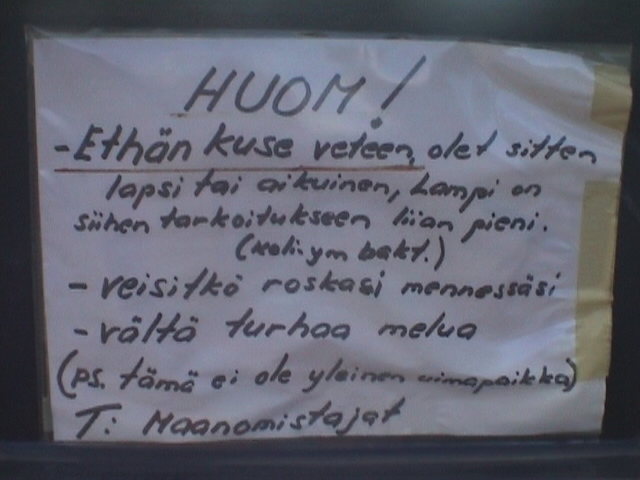 HUOM!
- Ethän kuse veteen, olet sitten
lapsi tai aikuinen, Lampi on
siihen tarkoitukseen liian pieni.
(koli. ym bakt.)
- veisitkö roskasi mennessäsi
- vältä turhaa melua
(ps. tämä ei ole yleinen uimapaikka)
T: Maanomistajat